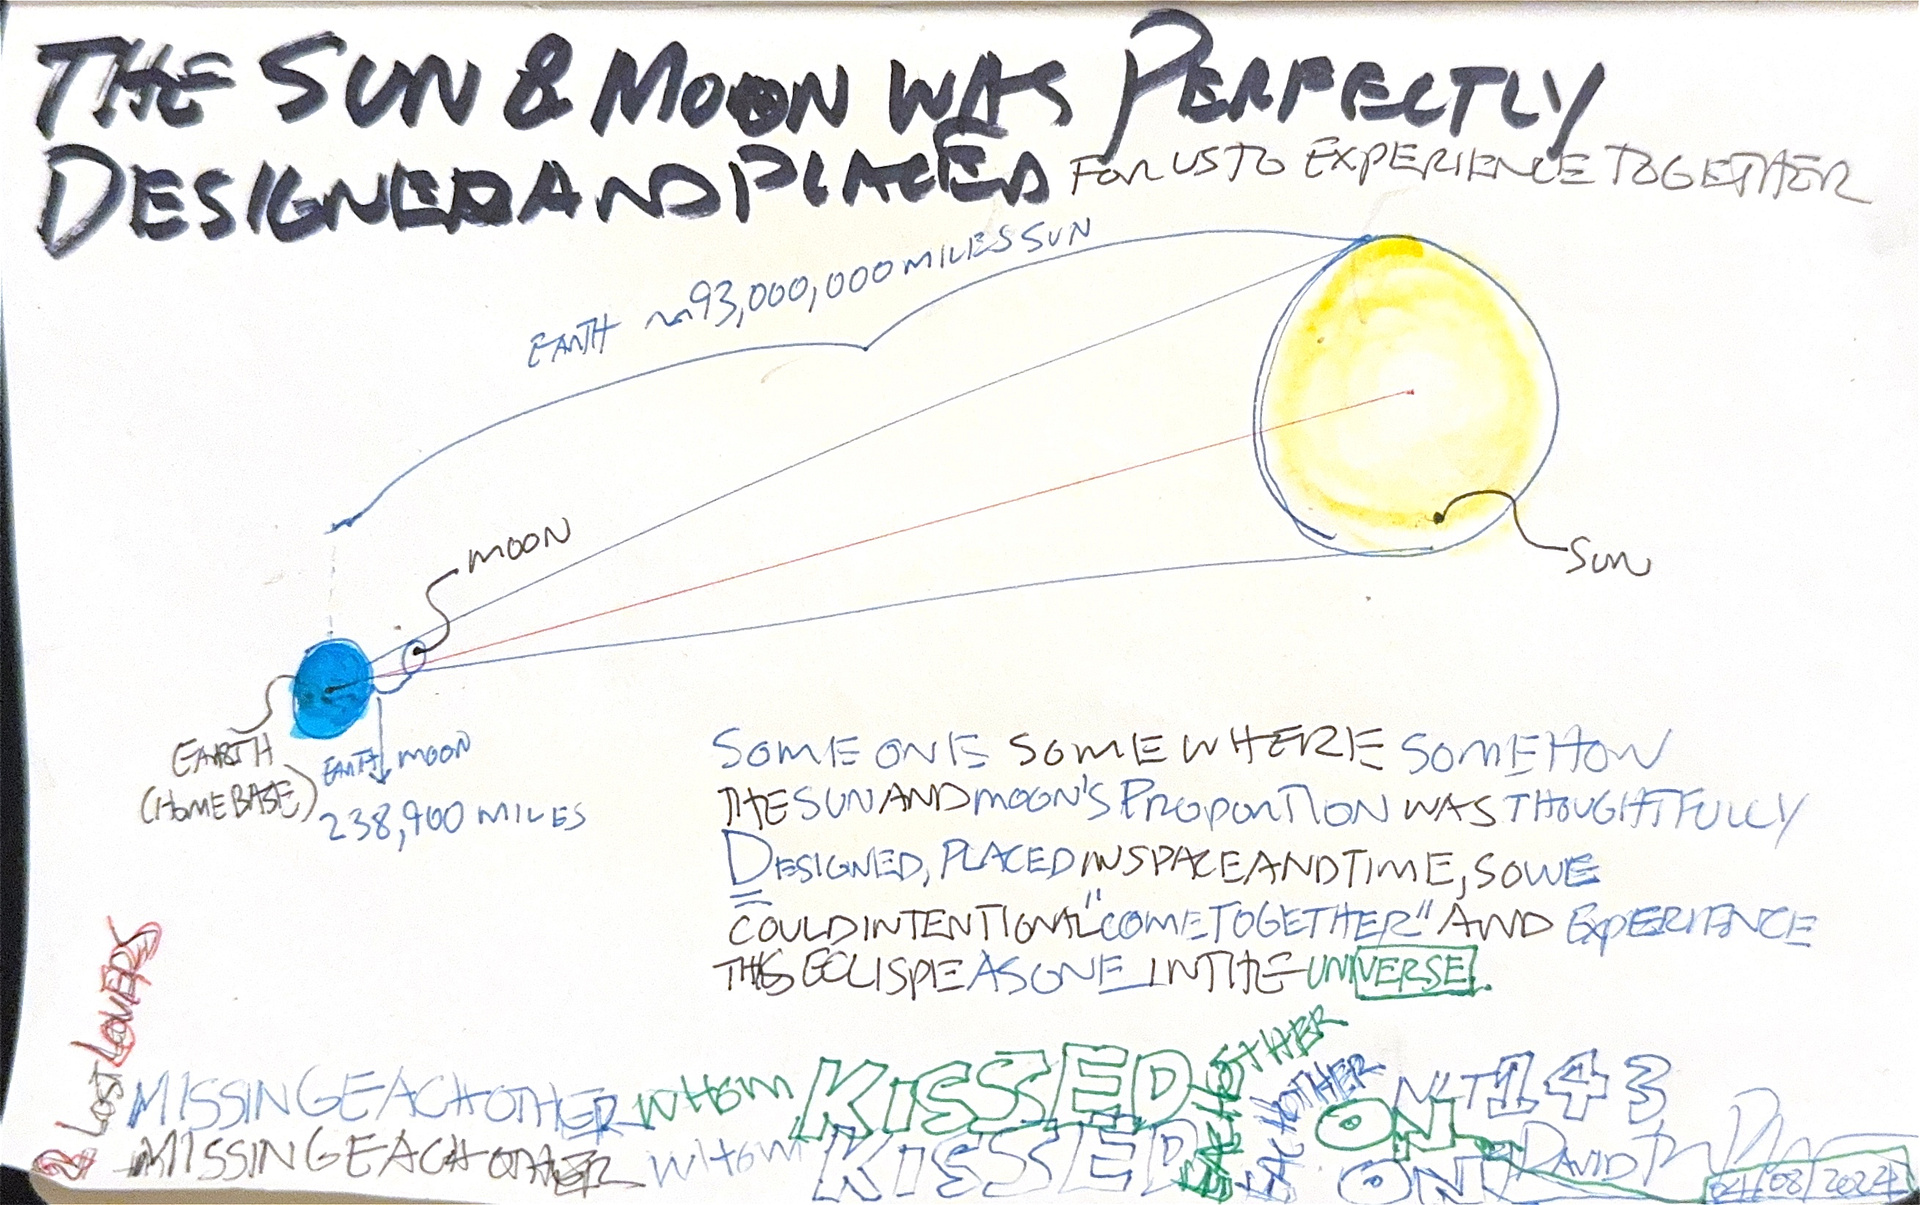 THE SUN & MOON WAS PERFECTLY
DESIGNED AND PLACED FOR US TO EXPERIENCE TOGETHER
EARTH ~ 93,000,000 MILES SUN
MOON
SUN
EARTH
(HOMEBASE)
EARTH MOON
238,900 MILES
SOME ONE SOMEWHERE SOMEHOW
THE SUN AND MOON'S PROPORTION WAS THOUGHTFULLY
DESIGNED, PLACED IN SPACE AND TIME, SO WE
COULD INTENTIONAL "COME TOGETHER" AND EXPERIENCE
THIS ECLISPE AS ONE IN THE UNIVERSE.
2 LOST LOVERS
MISSING EACH OTHER WHOM KISSED EACH OTHER ON
MISSING EACH OTHER WHOM KISSED EACH OTHER ON
143
DAVID
04/08/2024